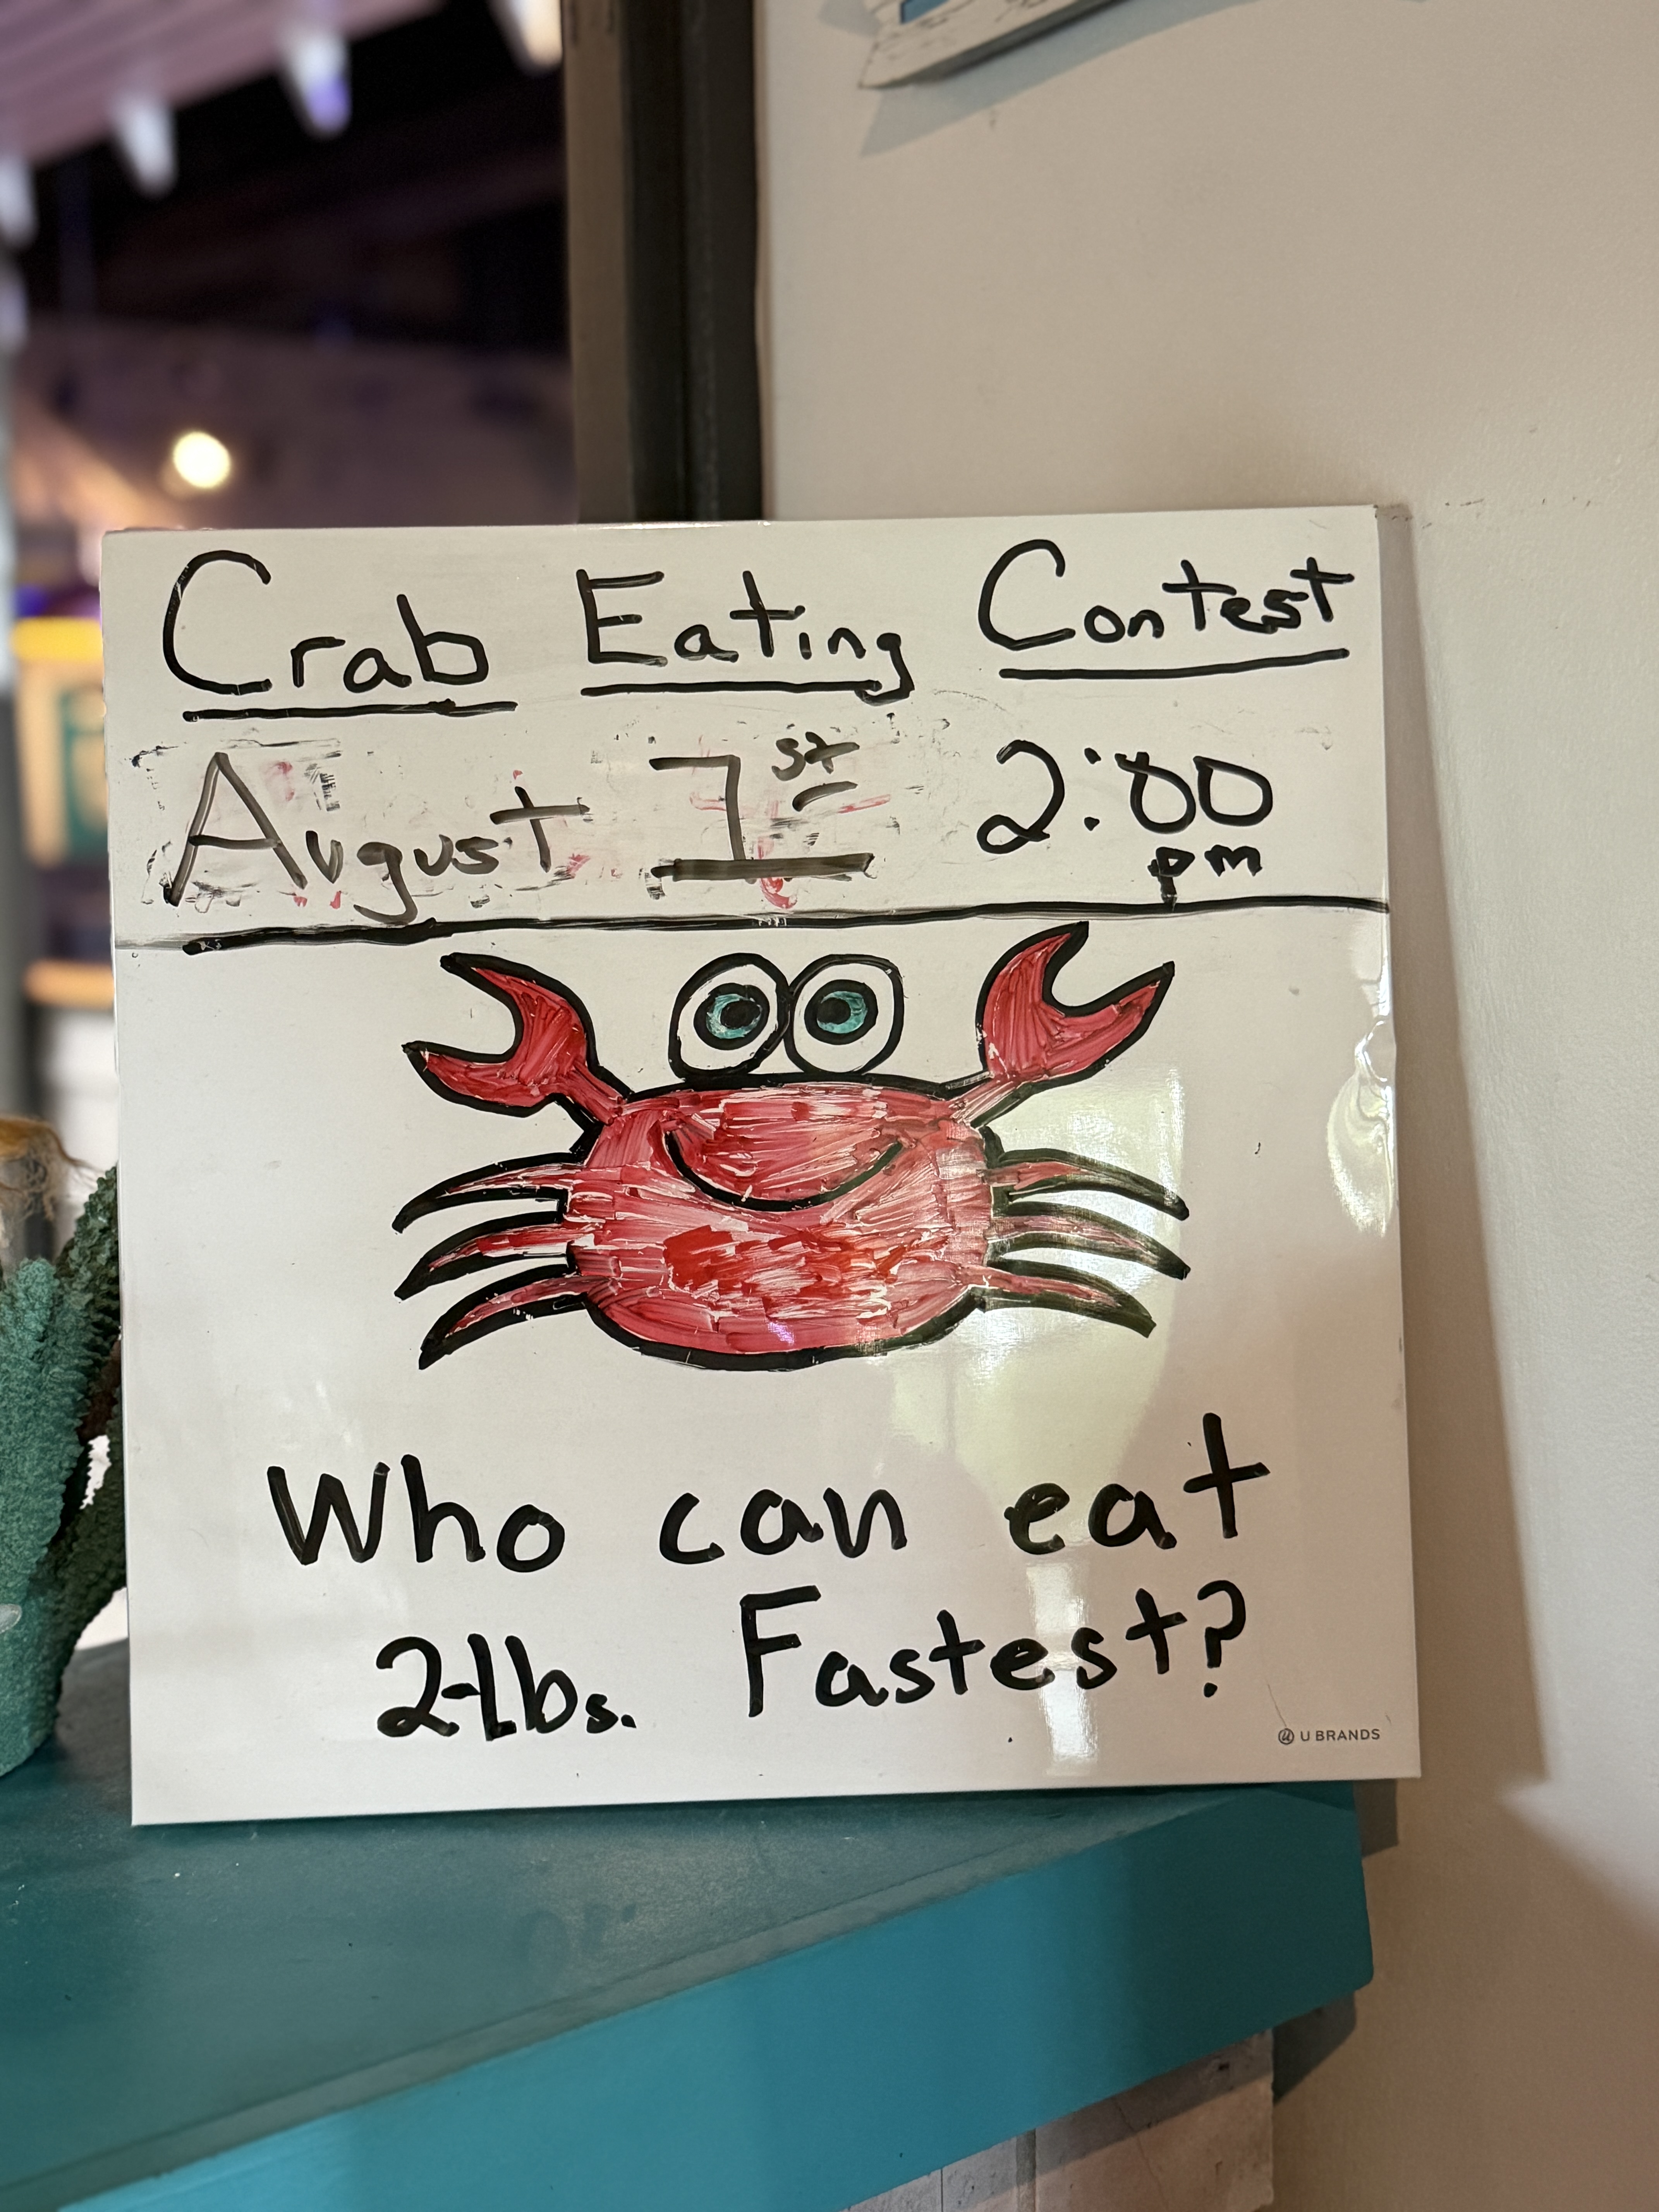 Crab Eating Contest
August 1st 2:00
pm
Who can eat
2-lbs. Fastest?
U BRANDS